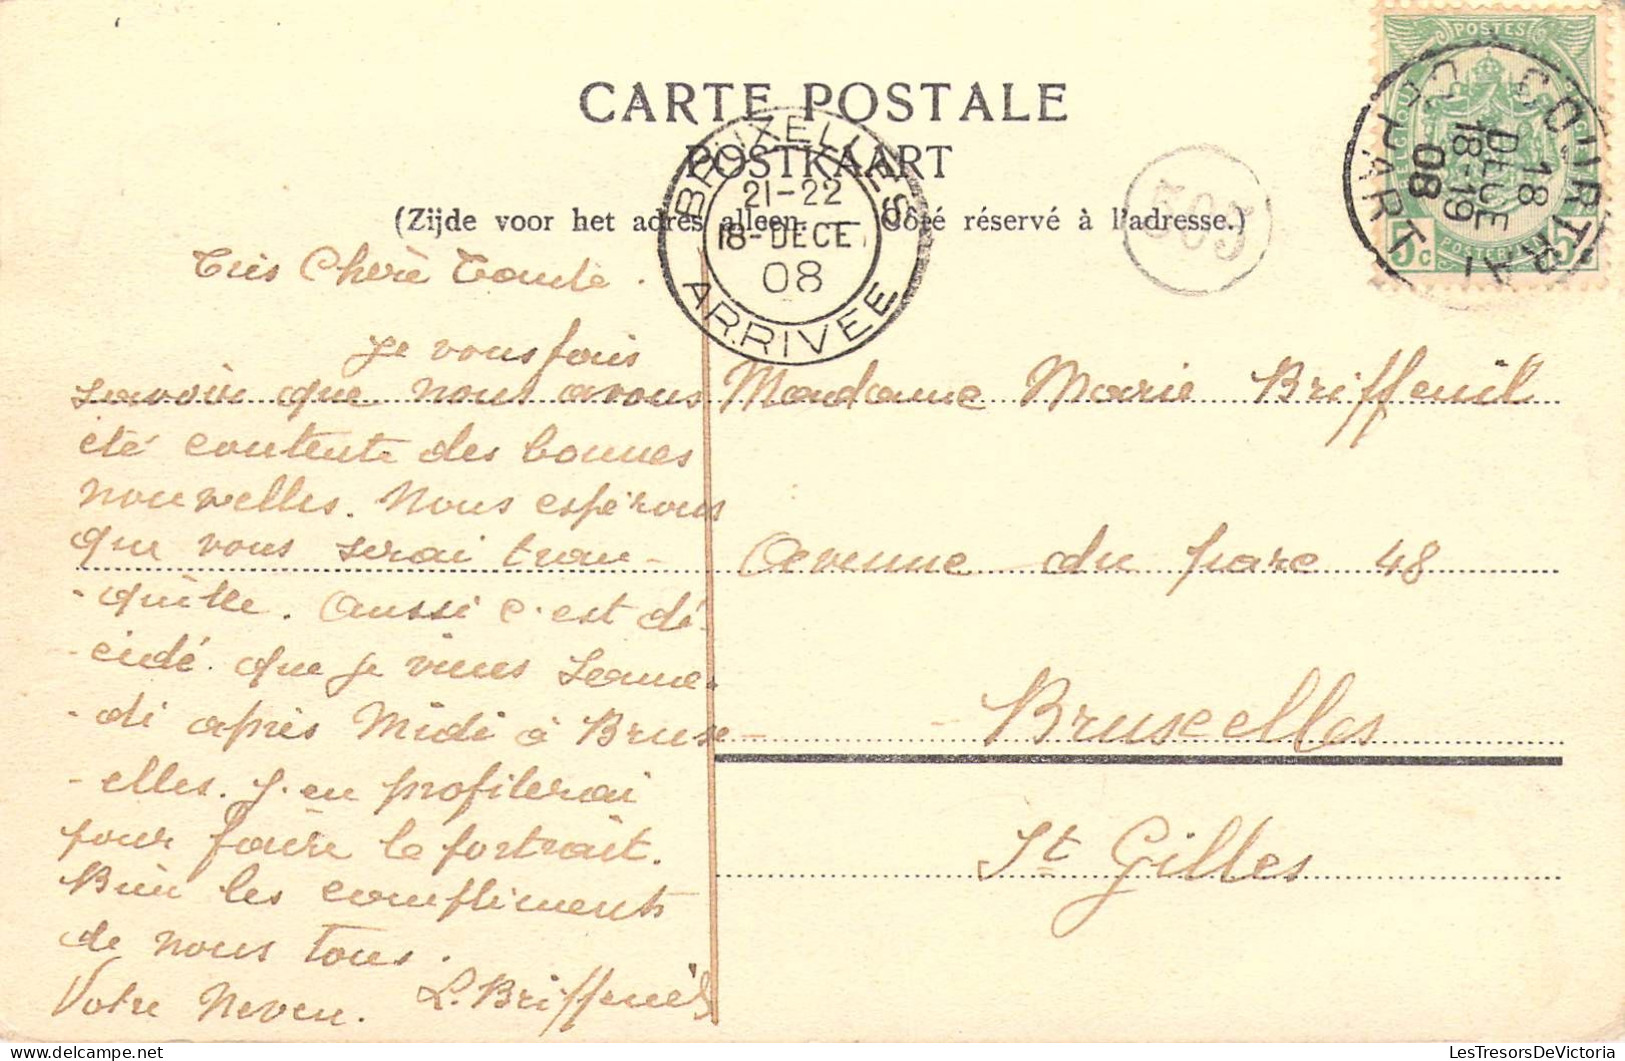 CARTE POSTALE
POSTKAART
(Zijde voor het adres alleen. — Côté réservé à l'adresse.)
BRUXELLES
21-22
18-DECE
08
ARRIVEE
505
POSTES
BELGIQUE
5c POSTERIJEN 5c
COURTRAI
18
DECE
18-19
08
DEPART
Très Chère Tante.
Je vous fais
savoir que nous avons
été contente des bonnes
nouvelles. Nous espérons
que vous serai tran-
-quille. Aussi c'est dé-
-cidé que je viens Same-
-di après Midi à Brux-
-elles. J'en profiterai
pour faire le portrait.
Bien les compliments
de nous tous.
Votre Neveu. L. Briffeuil
Madame Marie Briffeuil
Avenue du parc 48
Bruxelles
St Gilles
LesTresorsDeVictoria.com